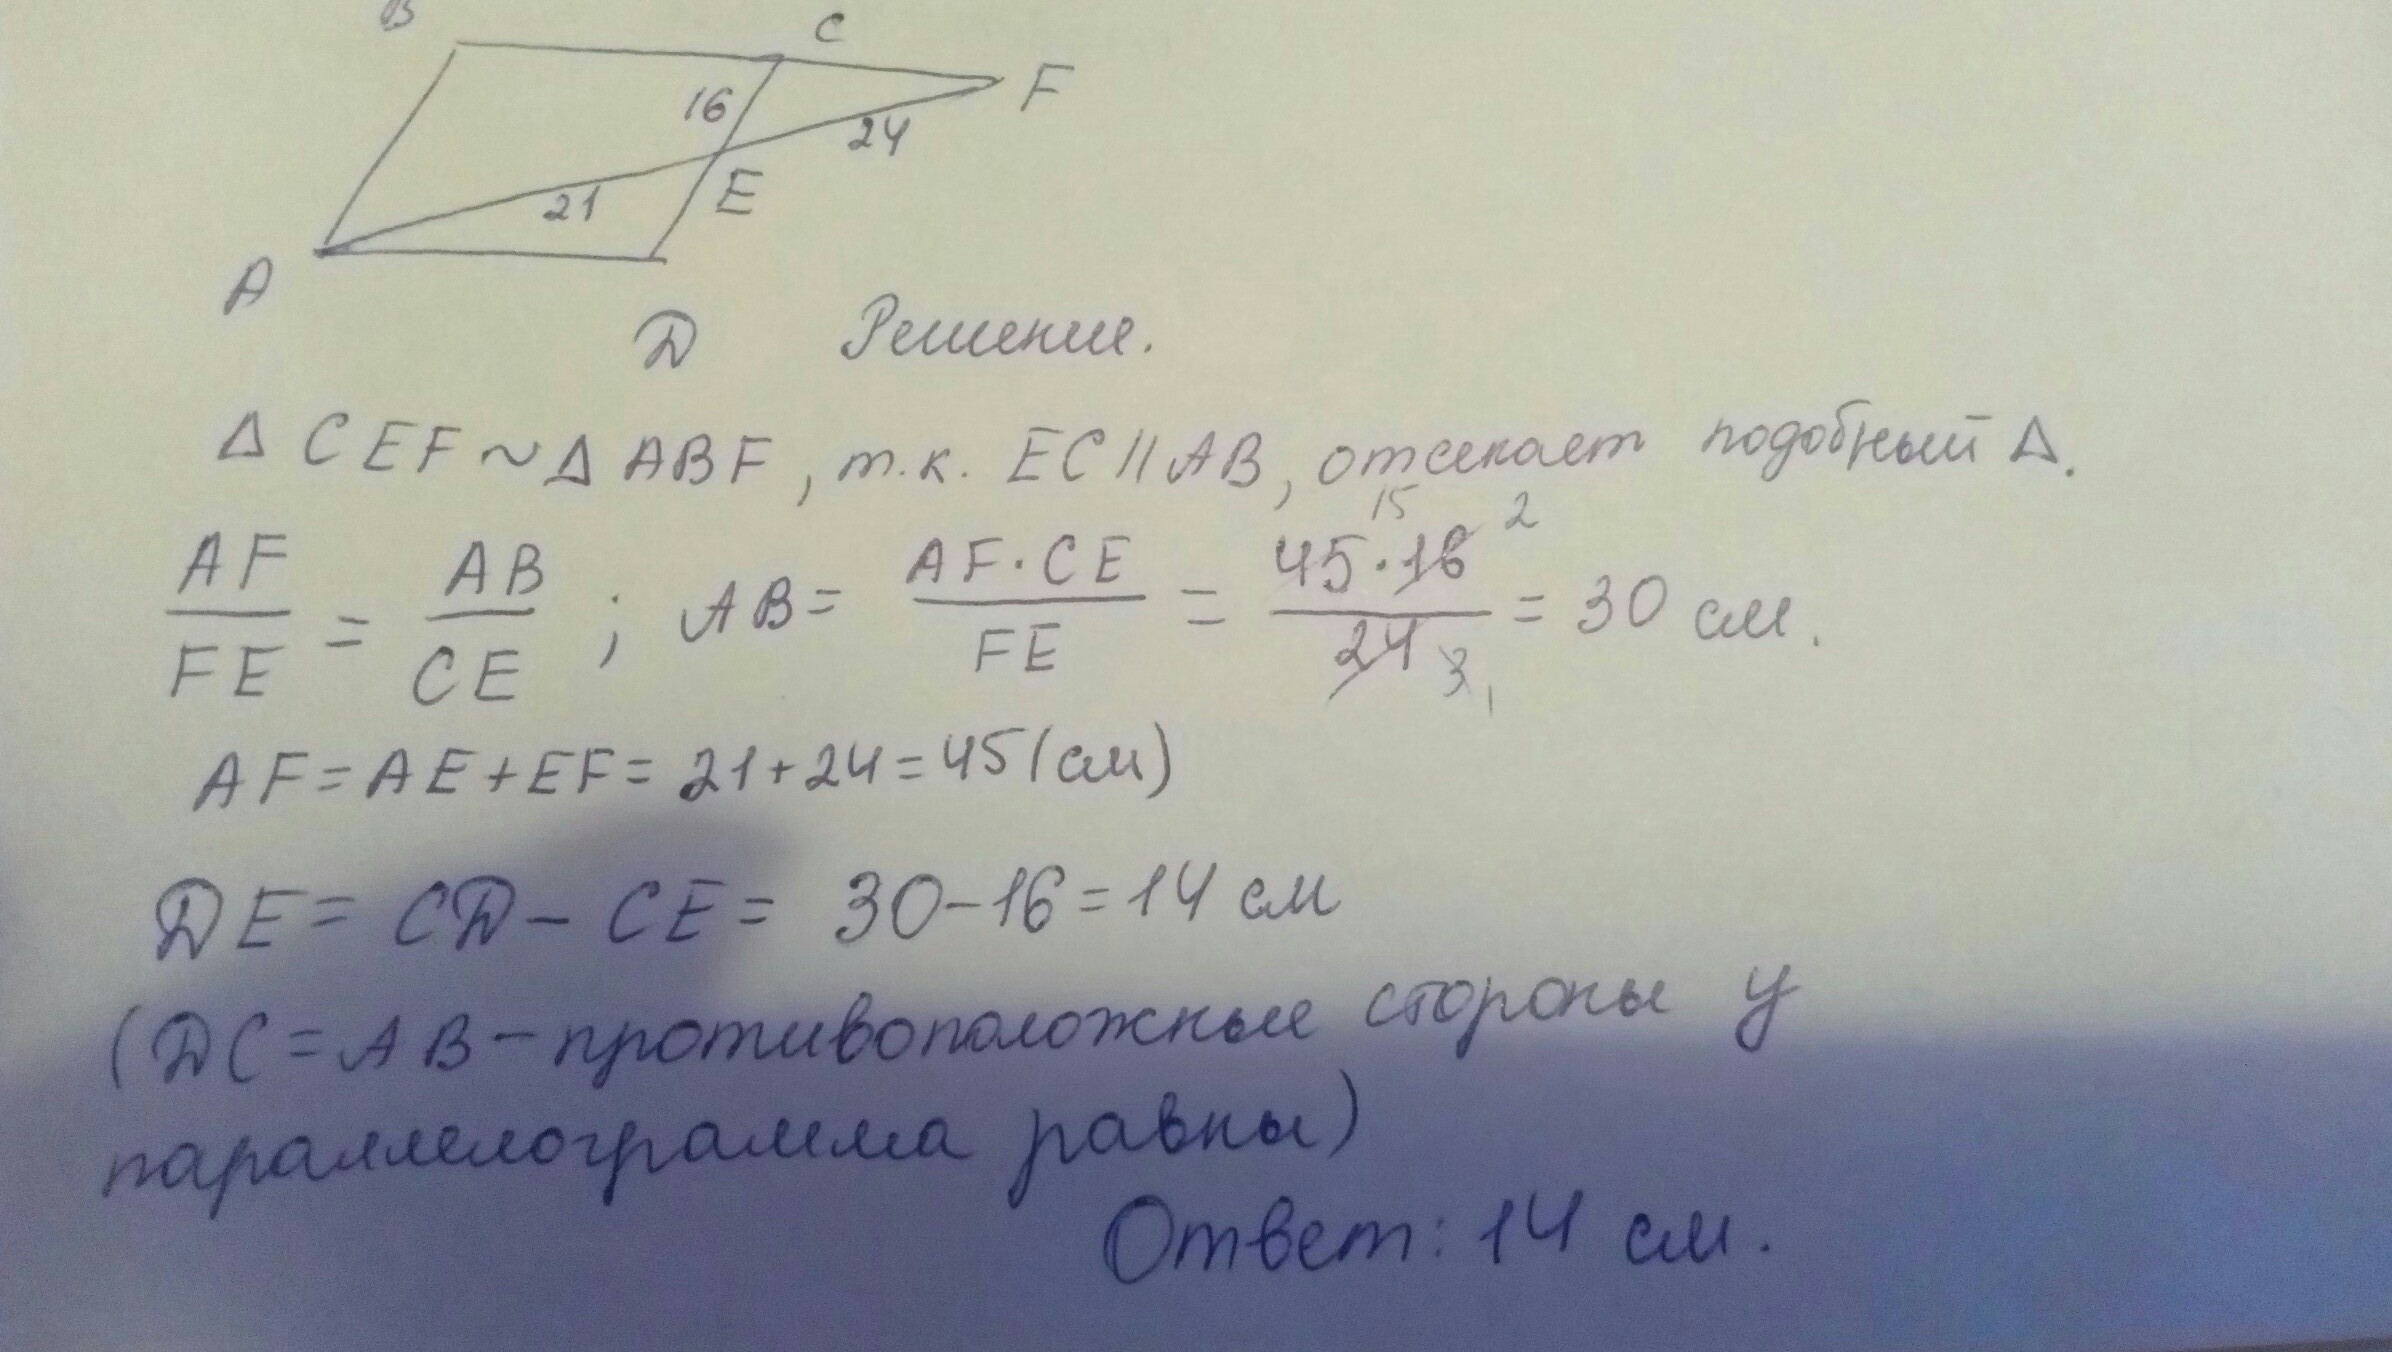 B
C
F
16
24
21
E
A
D
Решение.
Δ CEF ~ Δ ABF, т.к. EC || AB, отсекает подобный Δ.
AF/FE = AB/CE ; AB = AF·CE/FE = 45 15·16 2/24 3 1 = 30 см.
AF = AE + EF = 21 + 24 = 45 (см)
DE = CD - CE = 30 - 16 = 14 см
(DC = AB - противоположные стороны у
параллелограмма равны)
Ответ: 14 см.